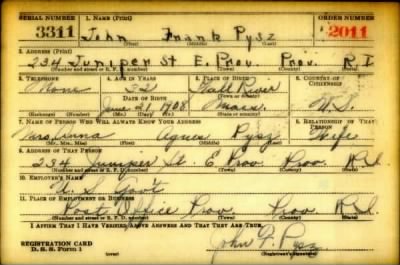 SERIAL NUMBER 1. NAME (Print) ORDER NUMBER
3311 John Frank Pysz 2011
(First) (Middle) (Last)
2. ADDRESS (Print)
234 Juniper St E. Prov. Prov. R I
(Number and street or R. F. D. number) (Town) (County) (State)
3. TELEPHONE 4. AGE IN YEARS 5. PLACE OF BIRTH 6. COUNTRY OF CITIZENSHIP
None 32 Fall River
DATE OF BIRTH
June 21 1908 Mass. U.S.
(Mo.) (Day) (Yr.)
7. NAME OF PERSON WHO WILL ALWAYS KNOW YOUR ADDRESS 8. RELATIONSHIP OF THAT PERSON
Mrs. Anna Agnes Pysz Wife
(Mr., Mrs., Miss) (First) (Middle) (Last)
9. ADDRESS OF THAT PERSON
234 Juniper St. E Prov. Prov. R.I.
(Number and street or R. F. D. number) (Town) (County) (State)
10. EMPLOYER'S NAME
U. S. Govt
11. PLACE OF EMPLOYMENT OR BUSINESS
Post Office Prov. Prov. R.I.
(Number and street or R. F. D. number) (Town) (County) (State)
I AFFIRM THAT I HAVE VERIFIED ABOVE ANSWERS AND THAT THEY ARE TRUE.
REGISTRATION CARD
D. S. S. Form 1 John F. Pysz
(Registrant's signature)